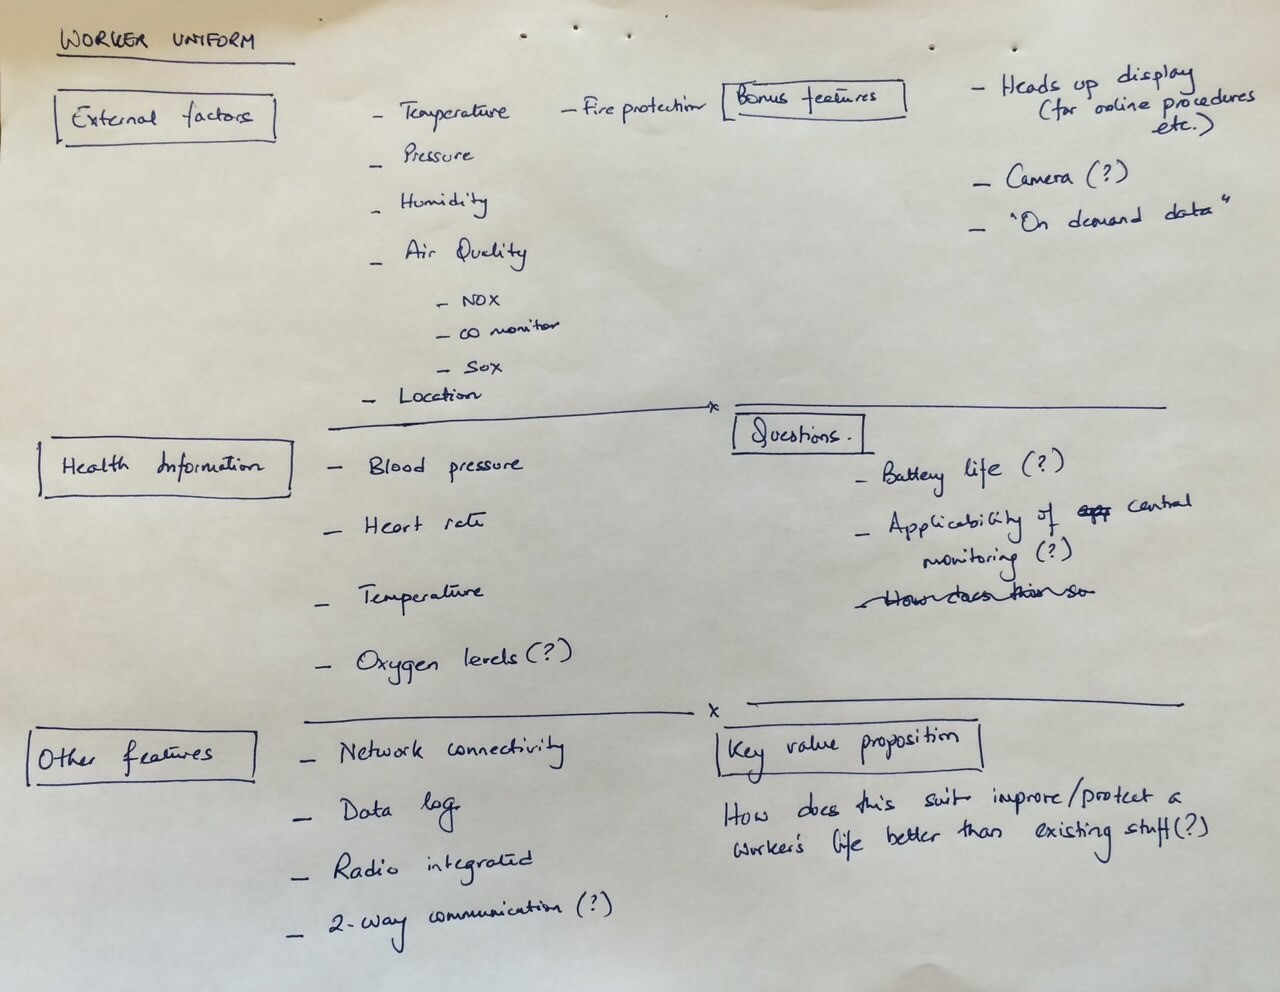 WORKER UNIFORM
External factors
- Temperature
- Fire protection
- Pressure
- Humidity
- Air Quality
- NOX
- CO monitor
- SOX
- Location
Bonus features
- Heads up display
(for online procedures
etc.)
- Camera (?)
- "On demand data"
Health Information
- Blood pressure
- Heart rate
- Temperature
- Oxygen levels (?)
Questions.
- Battery life (?)
- Applicability of central
monitoring (?)
- How does this so
Other features
- Network connectivity
- Data log
- Radio integrated
- 2-way communication (?)
Key value proposition
How does this suit improve/protect a
worker's life better than existing stuff (?)